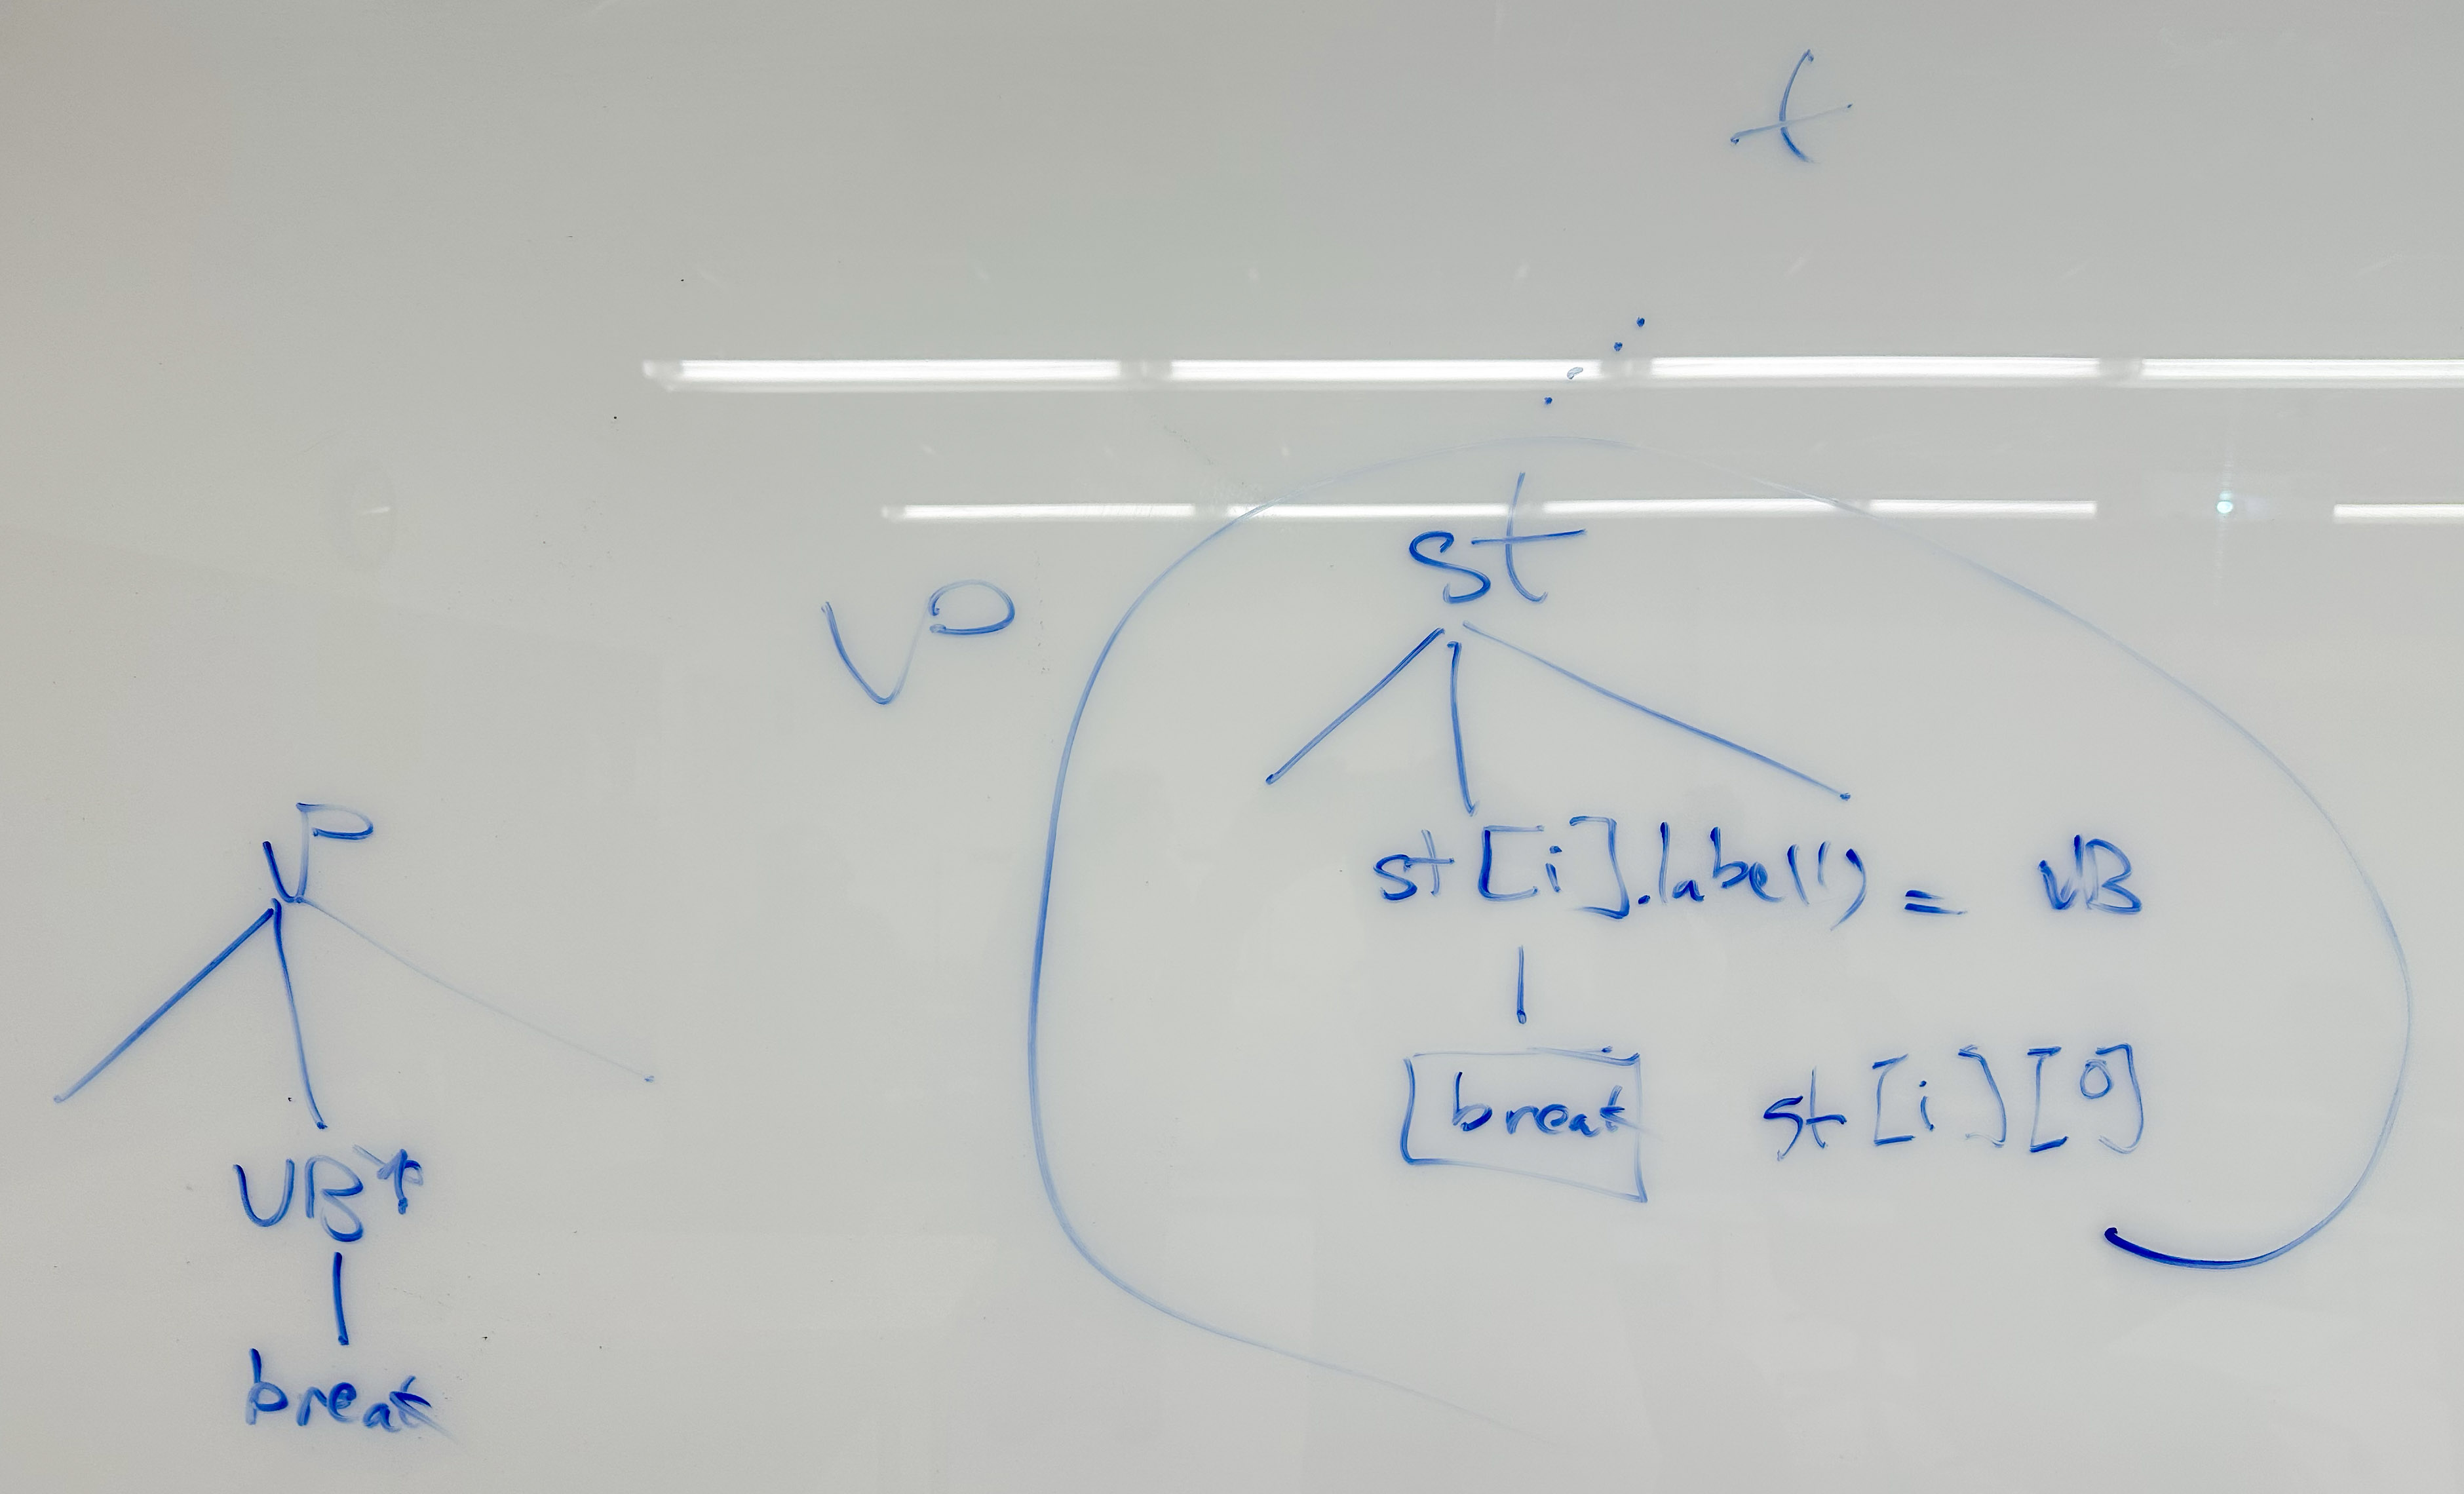 t
st
VP
VP
st[i].label() = VB
break st[i][0]
VB*
break